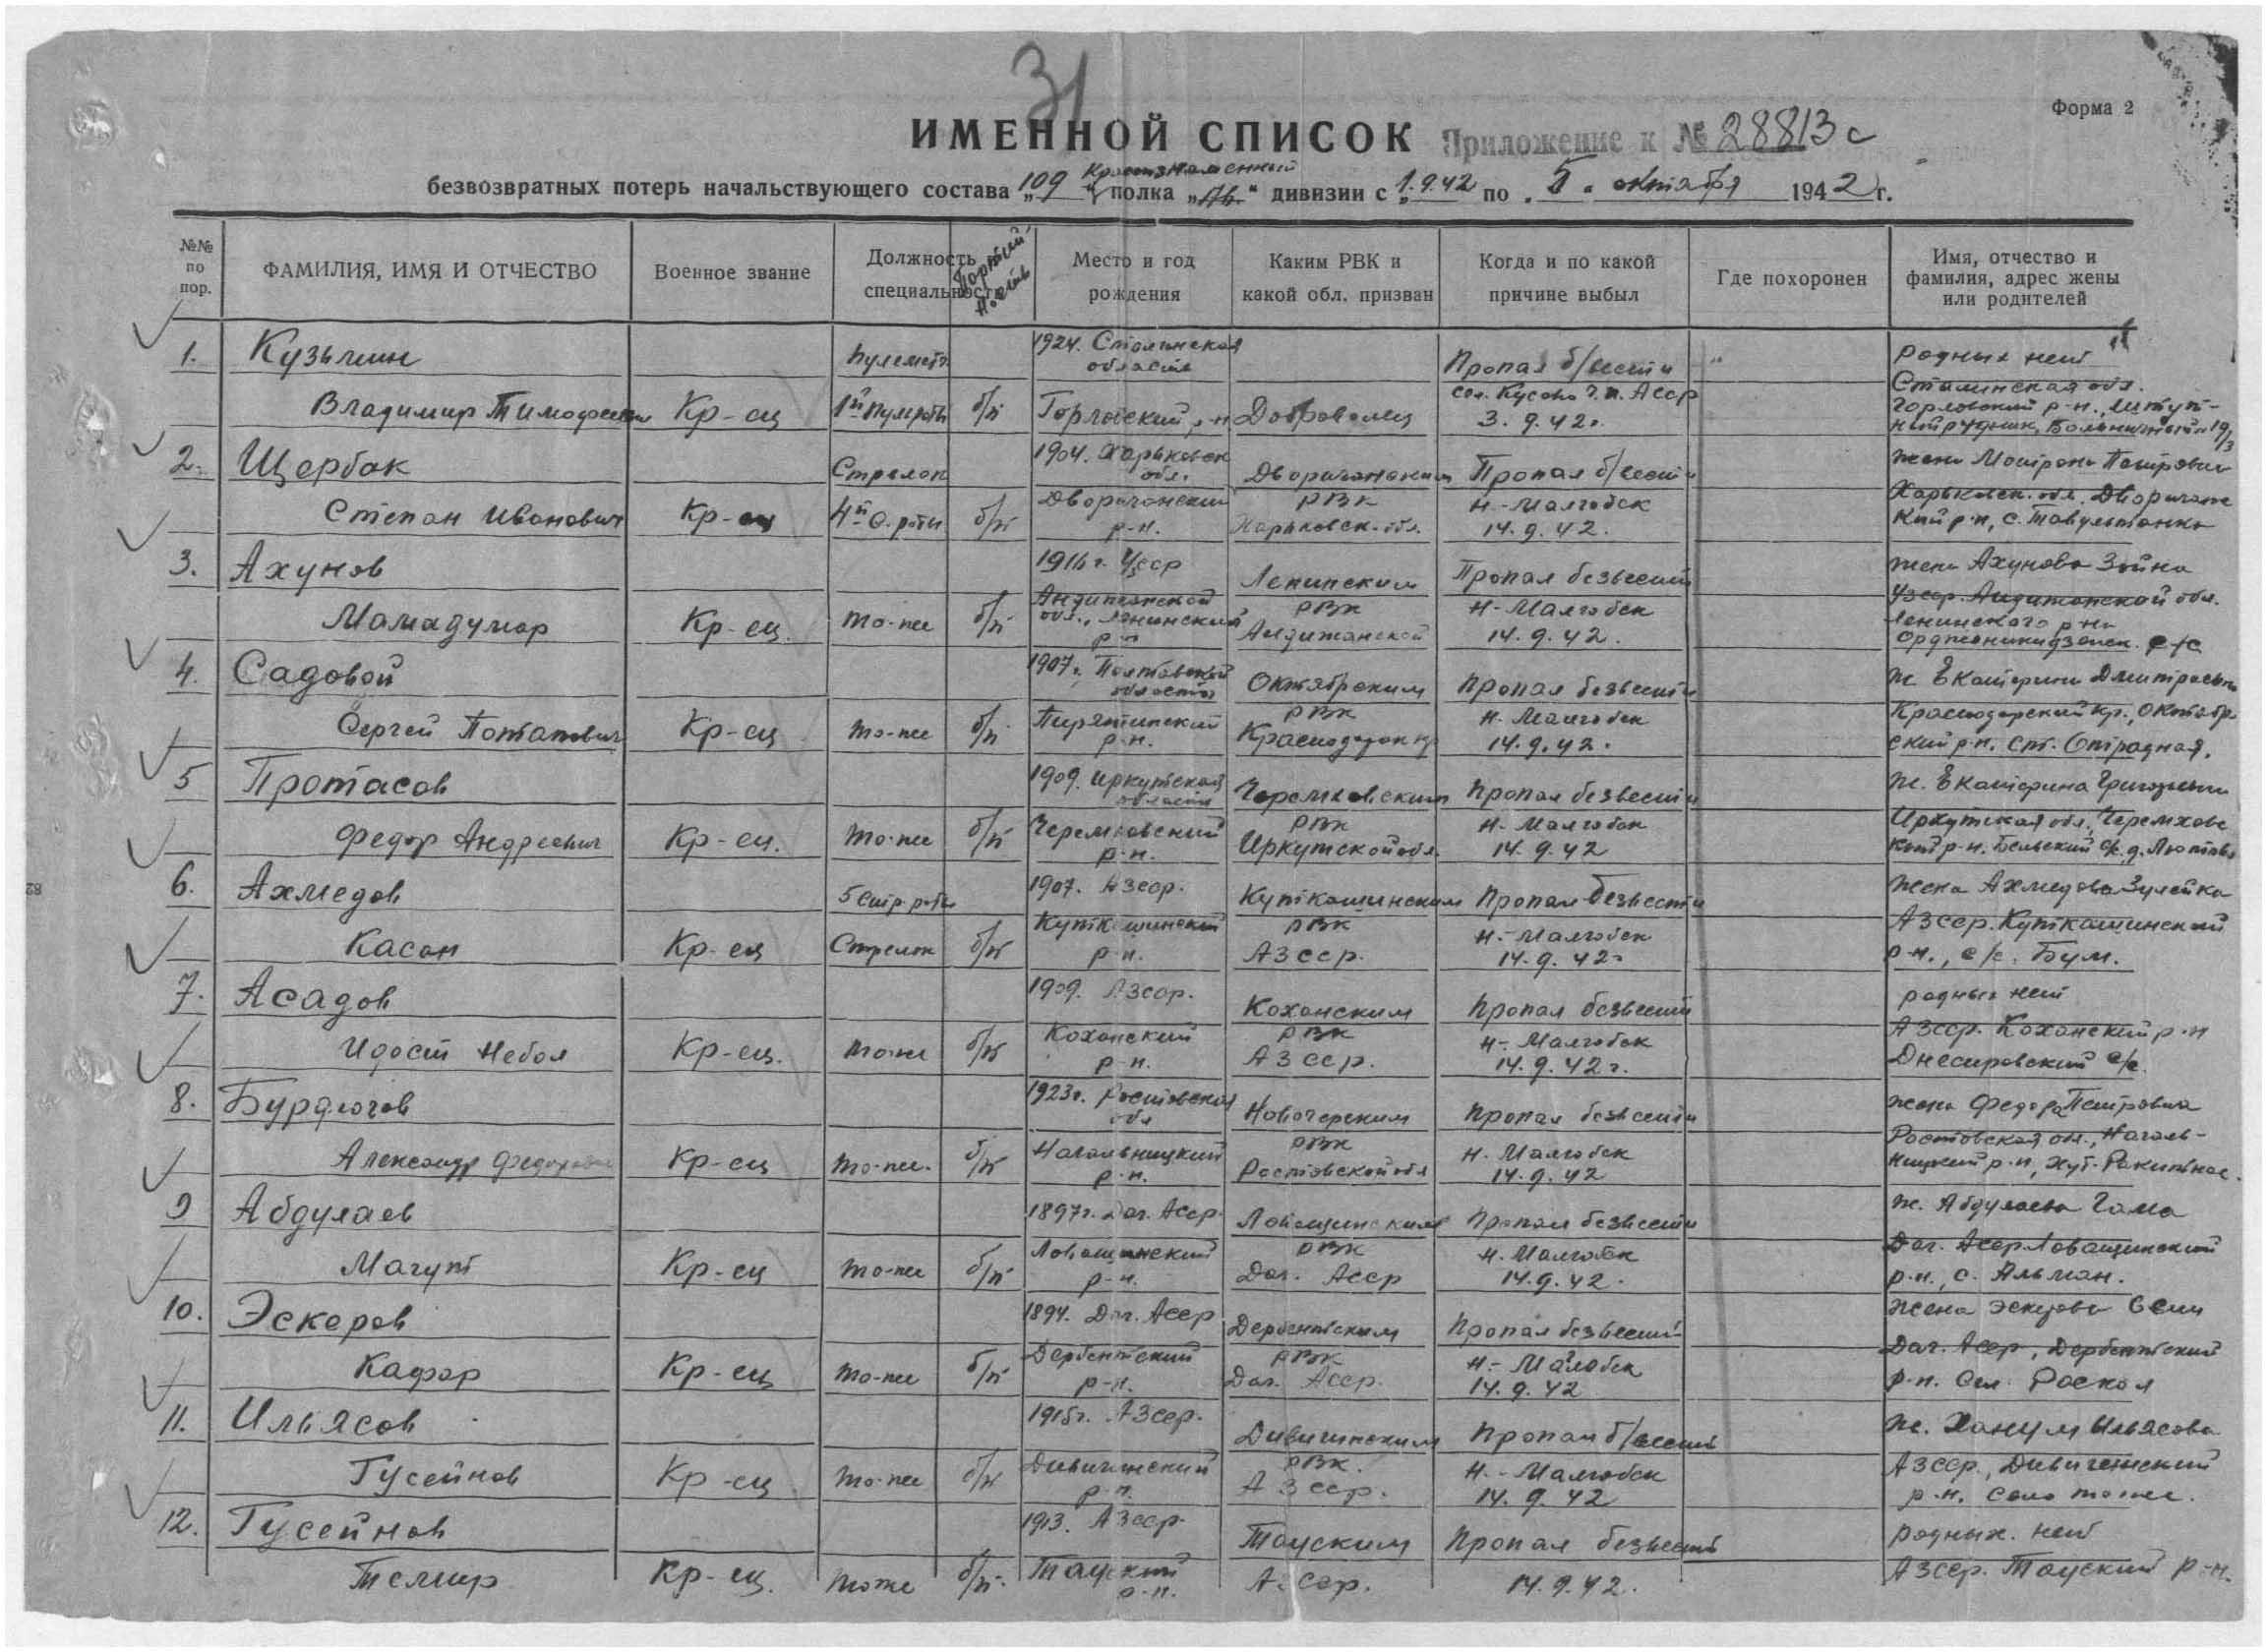 31
Форма 2
ИМЕННОЙ СПИСОК Приложение к № 28813с
Краснознаменный
безвозвратных потерь начальствующего состава „109 полка „ “ дивизии с „1.9.42 по „5" октября 1942 г.
№№ по пор.
ФАМИЛИЯ, ИМЯ И ОТЧЕСТВО
Военное звание
Должность специальность
Партийность
Место и год рождения
Каким РВК и какой обл. призван
Когда и по какой причине выбыл
Где похоронен
Имя, отчество и фамилия, адрес жены или родителей
1. Кузьмин
Владимир Тимофеевич
Кр-ец
Пулеметч.
1й пульроты
б/п
1924. Сталинская область
Горловский р-н
Доброволец
Пропал б/вести
сел. Кусово Ч.И. Асср
3.9.42г.
родных нет
Сталинская обл.
Горловский р-н.,
2. Щербак
Степан Иванович
Кр-ец
Стрелок
4й с. роты
б/п
1904. Харьковск обл.
Двориченский р-н.
Двориченским РВК
Харьковск. обл.
Пропал б/вести
Н-Малгобек
14.9.42.
жена Матрена Петровна
Харьковск. обл. Двориченс
кий р-н, с.
3. Ахунов
Мамадумар
Кр-ец
то-же
б/п
1916г. Узсср
Андижанской обл., Ленинский р-н
Ленинским РВК
Андижанской
Пропал безвести
Н-Малгобек
14.9.42.
жена Ахунова Зайна
Узсср. Андижанской обл.
Ленинского р-на
Орджоникидзенск. с/с
4. Садовой
Сергей Потапович
Кр-ец
то-же
б/п
1907г. Полтавской области
Пирятинский р-н.
Октябрским РВК
Краснодарск кр
Пропал безвести
Н-Малгобек
14.9.42.
ж. Екатерина Дмитриевна
Краснодарский кр., Октябр
ский р-н. ст. Отрадная.
5 Протасов
Федор Андреевич
Кр-ец.
то-же
б/п
1909. Иркутская область
Черемховский р-н.
Черемховским РВК
Иркутской обл.
Пропал безвести
Н-Малгобек
14.9.42
ж. Екатерина Григорьевна
Иркутская обл., Черемховс
кий р-н. Бельский с/с, д.
6. Ахмедов
Касан
Кр-ец
5 стр. роты
Стрелок
б/п
1907. Азсср.
Куткашинский р-н.
Куткашинским РВК
АЗсср.
Пропал безвести
Н-Малгобек
14.9.42г
жена Ахмедова Зулейка
АЗсср. Куткашинский
р-н., с/с. Бум.
7. Асадов
Идост Небол
Кр-ец.
то-же
б/п
1909. АЗсср.
Коханский р-н.
Коханским РВК
АЗсср.
Пропал безвести
Н-Малгобек
14.9.42г.
родных нет
АЗсср. Коханский р-н
с/с.
8. Бурдюгов
Александр Федорович
Кр-ец
то-же.
б/п
1923г. Ростовская обл
Нагольницкий р-н.
Новочерским РВК
Ростовской обл
Пропал безвести
Н-Малгобек
14.9.42
жена Федора Петровна
Ростовская обл., Наголь-
ницкий р-н, хут. Ракитное.
9 Абдулаев
Магут
Кр-ец
то-же
б/п
1897г. Даг. Асср.
Ловащинский р-н.
Ловащинским РВК
Даг. Асср
Пропал безвести
Н-Малгобек
14.9.42.
ж. Абдулаева Гама
Даг. Асср Ловащинский
р-н., с. Альман.
10. Эскеров
Кафар
Кр-ец
то-же
б/п
1894. Даг. Асср
Дербентский р-н.
Дербентским РВК
Даг. Асср.
Пропал безвести
Н-Малобек
14.9.42
жена Эскерова
Даг. Асср, Дербентский
р-н. сел. Роскол
11. Ильясов
Гусейнов
Кр-ец
то-же
б/п
1915г. АЗсср.
Дивичинский р-н.
Дивичинским РВК.
АЗсср.
Пропал б/вести
Н.-Малгобек
14.9.42
ж. Ханум Ильясова
АЗсср., Дивичинский
р-н. село тоже.
12. Гусейнов
Темир
Кр-ец.
тоже
б/п.
1913. АЗсср.
Тауский р-н.
Тауским
АЗсср.
Пропал безвести
14.9.42.
родных. нет
АЗсср. Тауский р-н.